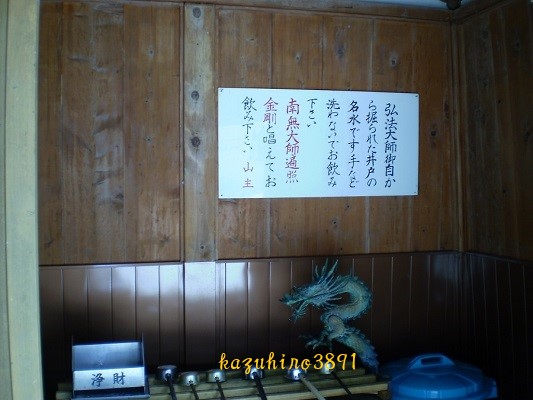 弘法大師御自か
ら掘られた井戸の
名水です手など
洗わないでお飲み
下さい
南無大師遍照
金剛と唱えてお
飲み下さい 山主
浄財
kazuhiro3891